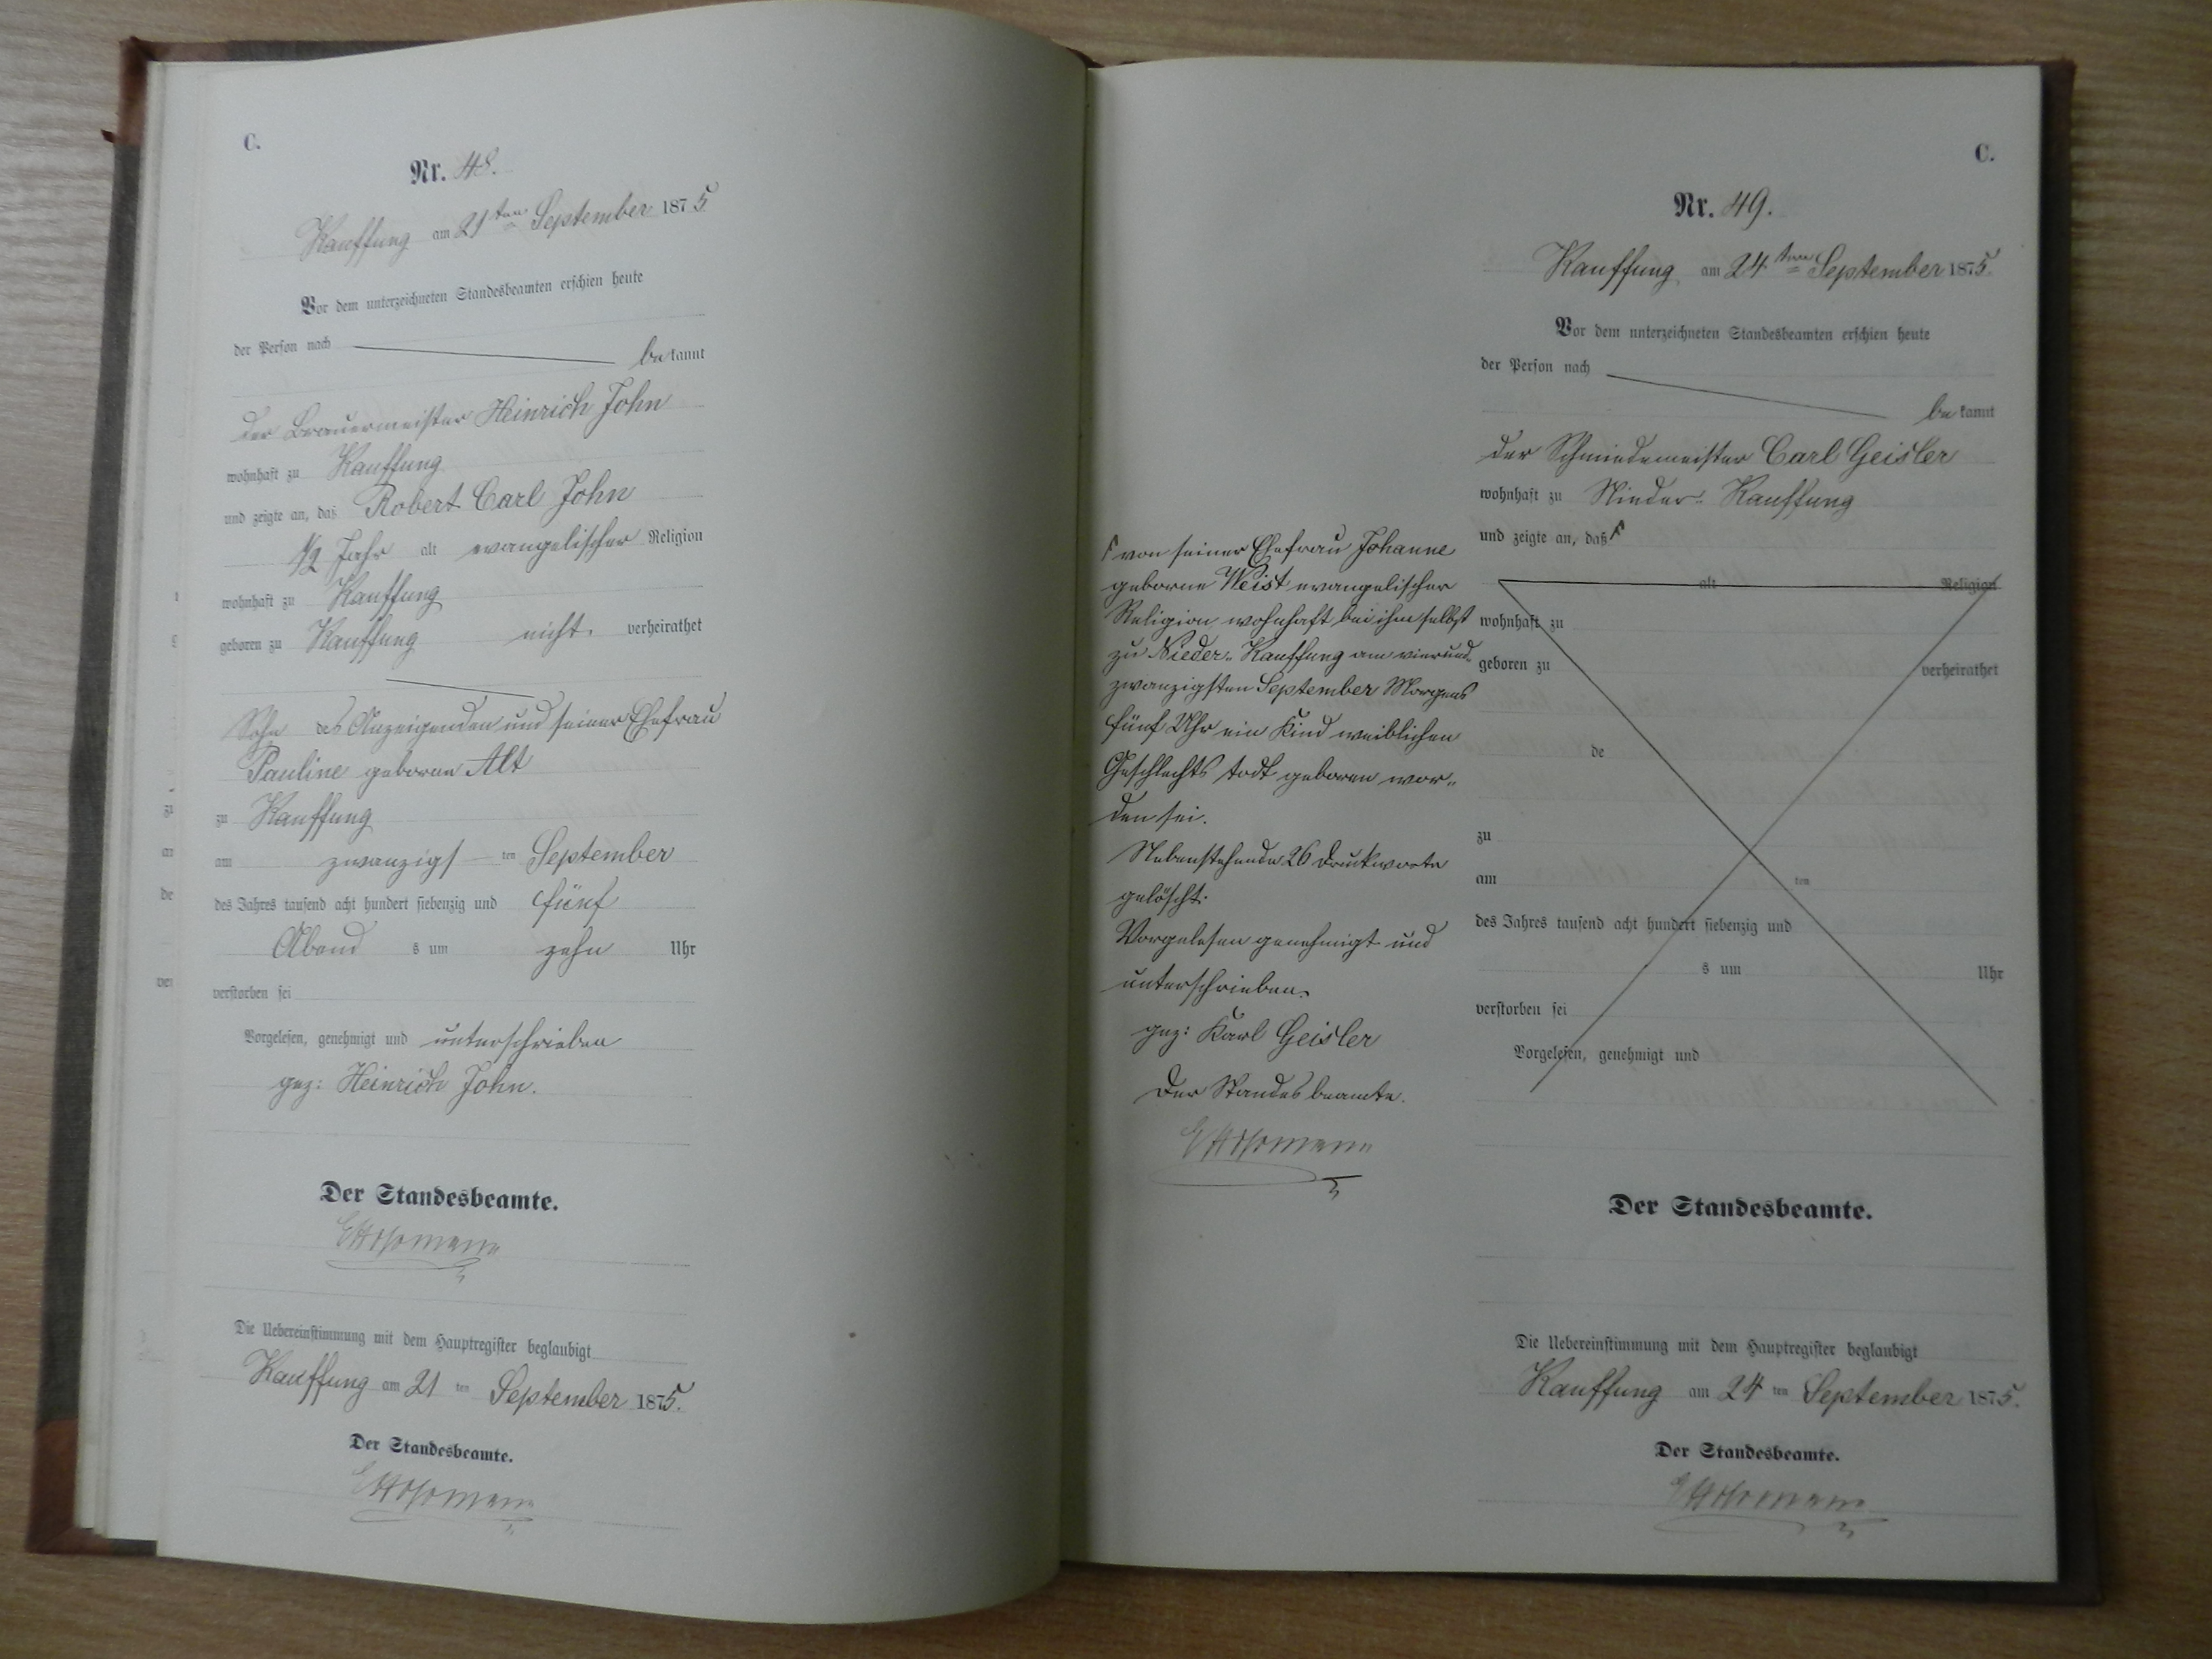 C.
Nr. 48.
Kauffung am 21ten September 1875
Vor dem unterzeichneten Standesbeamten erschien heute
der Person nach
bekannt
der Brauermeister Heinrich John
wohnhaft zu Kauffung
und zeigte an, daß Robert Carl John
1/2 Jahr alt evangelischer Religion
wohnhaft zu Kauffung
geboren zu Kauffung nicht verheirathet
Sohn des Anzeigenden und seiner Ehefrau
Pauline geborne Alt
zu Kauffung
am zwanzigsten September
des Jahres tausend acht hundert siebenzig und fünf
Abends um zehn Uhr
verstorben sei
Vorgelesen, genehmigt und unterschrieben
gez: Heinrich John.
Der Standesbeamte.
Die Uebereinstimmung mit dem Hauptregister beglaubigt
Kauffung am 21ten September 1875.
Der Standesbeamte.
C.
Nr. 49.
Kauffung am 24ten September 1875.
Vor dem unterzeichneten Standesbeamten erschien heute
der Person nach
bekannt
der Schmiedemeister Carl Geisler
wohnhaft zu Nieder-Kauffung
und zeigte an, daß
von seiner Ehefrau Johanne
geborne Weist evangelischer
Religion wohnhaft bei ihm selbst
zu Nieder-Kauffung am vierund-
zwanzigsten September Morgens
fünf Uhr ein Kind weiblichen
Geschlechts todt geboren wor-
den sei.
Nebenstehende 26 Druckworte
gelöscht.
Vorgelesen genehmigt und
unterschrieben.
gez: Karl Geisler
Der Standesbeamte.
alt Religion
wohnhaft zu
geboren zu verheirathet
de
zu
am ten
des Jahres tausend acht hundert siebenzig und
s um Uhr
verstorben sei
Vorgelesen, genehmigt und
Der Standesbeamte.
Die Uebereinstimmung mit dem Hauptregister beglaubigt
Kauffung am 24ten September 1875.
Der Standesbeamte.